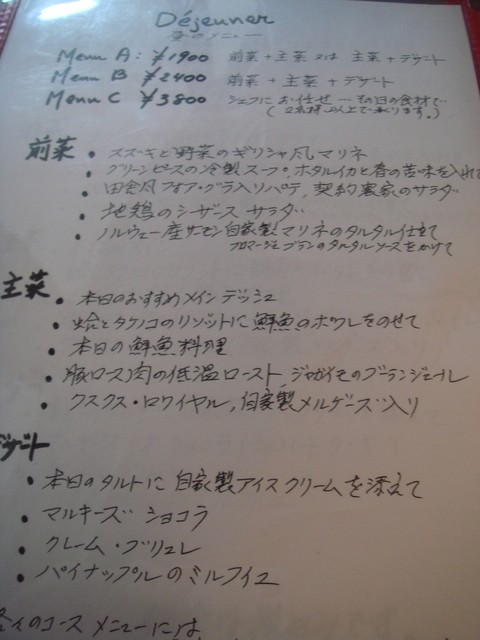 Déjeuner
昼のメニュー
Menu A: ¥1900 前菜+主菜 又は 主菜+デザート
Menu B ¥2400 前菜+主菜+デザート
Menu C ¥3800 シェフにお任せ…その日の食材で…
(2名様以上で承ります。)
前菜
• スズキと野菜のギリシャ風マリネ
• グリーンピースの冷製スープ、ホタルイカと春の苦味を入れて
• 田舎風フォア・グラ入りパテ、契約農家のサラダ
• 地鶏のシーザース サラダ
• ノルウェー産サーモン自家製マリネのタルタル仕立て
フロマージュブランのタルタルソースをかけて
主菜
• 本日のおすすめメインディッシュ
• 蛤とタケノコのリゾットに鮮魚のポワレをのせて
• 本日の鮮魚料理
• 豚ロース肉の低温ロースト、ジャガイモのブランジェール
• クスクス・ロワイヤル、自家製メルゲーズ入り
デザート
• 本日のタルトに自家製アイスクリームを添えて
• マルキーズ ショコラ
• クレーム・ブリュレ
• パイナップルのミルフイユ
各々のコースメニューには